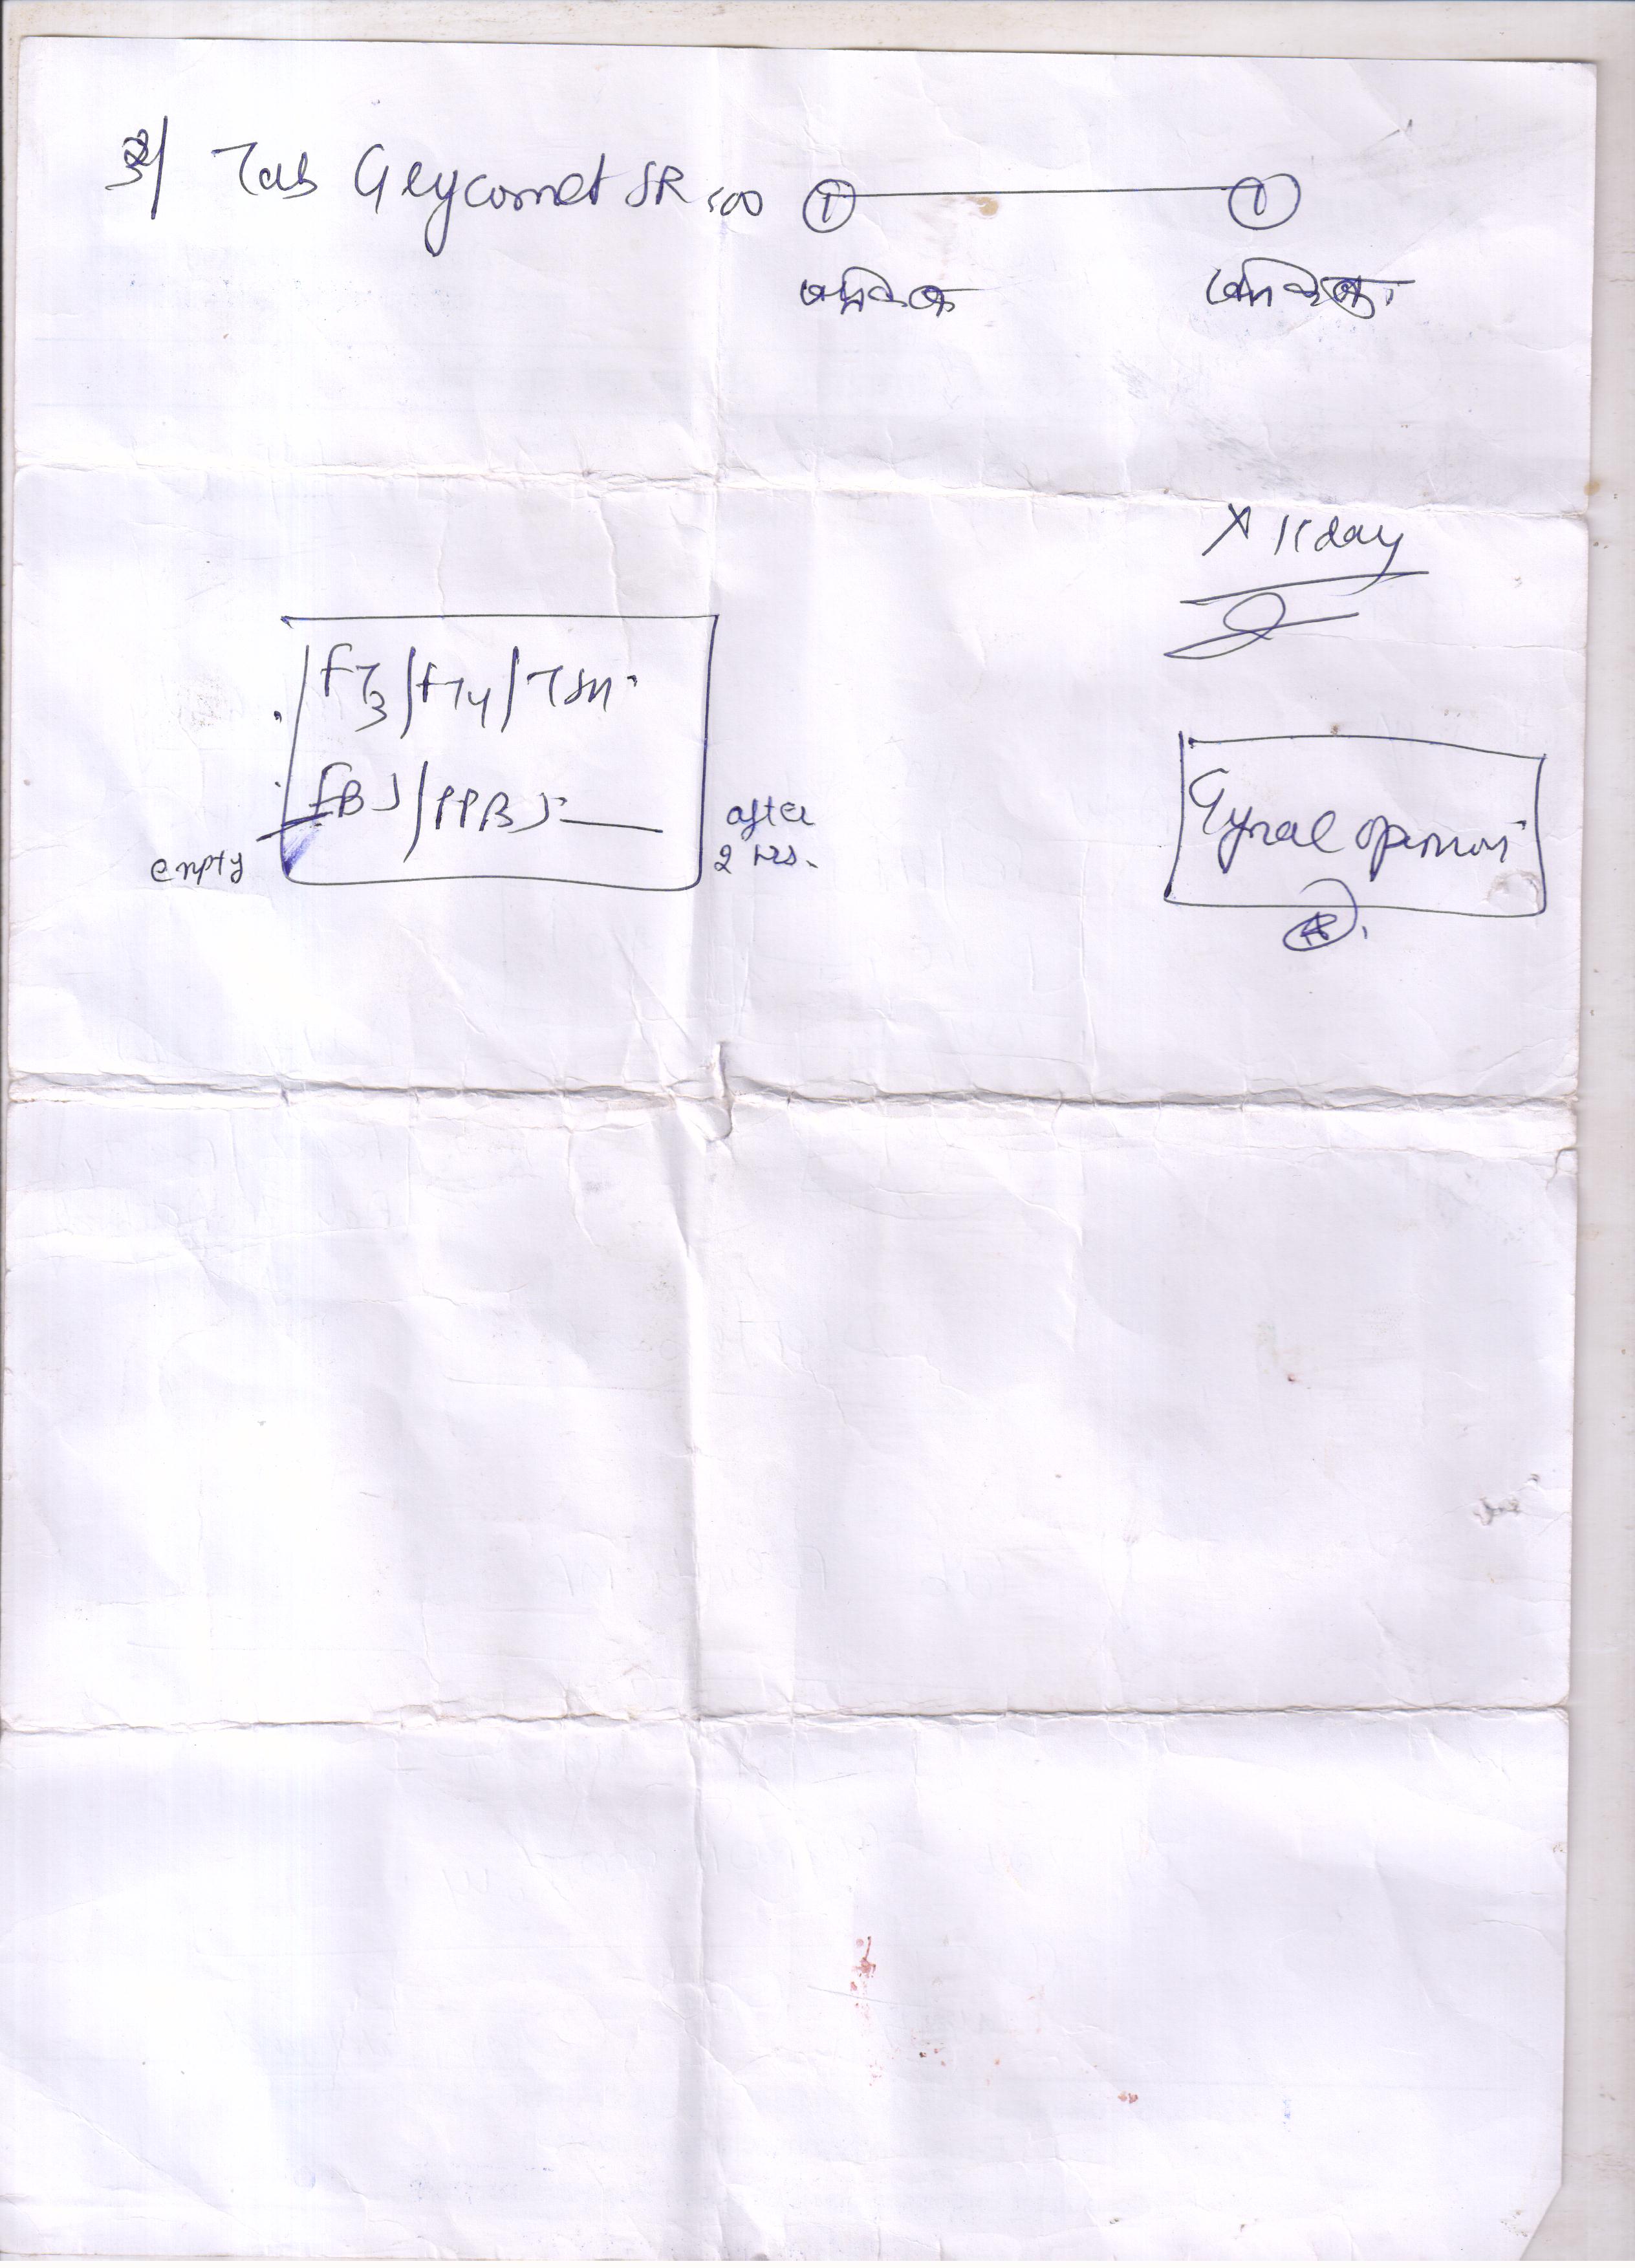 3/ Tab Glycomet SR 500 ① — ①
X 11 day
FT3/FT4/TSH
FBS/PPBS
empty
after
2 hrs.
Gynae opinion